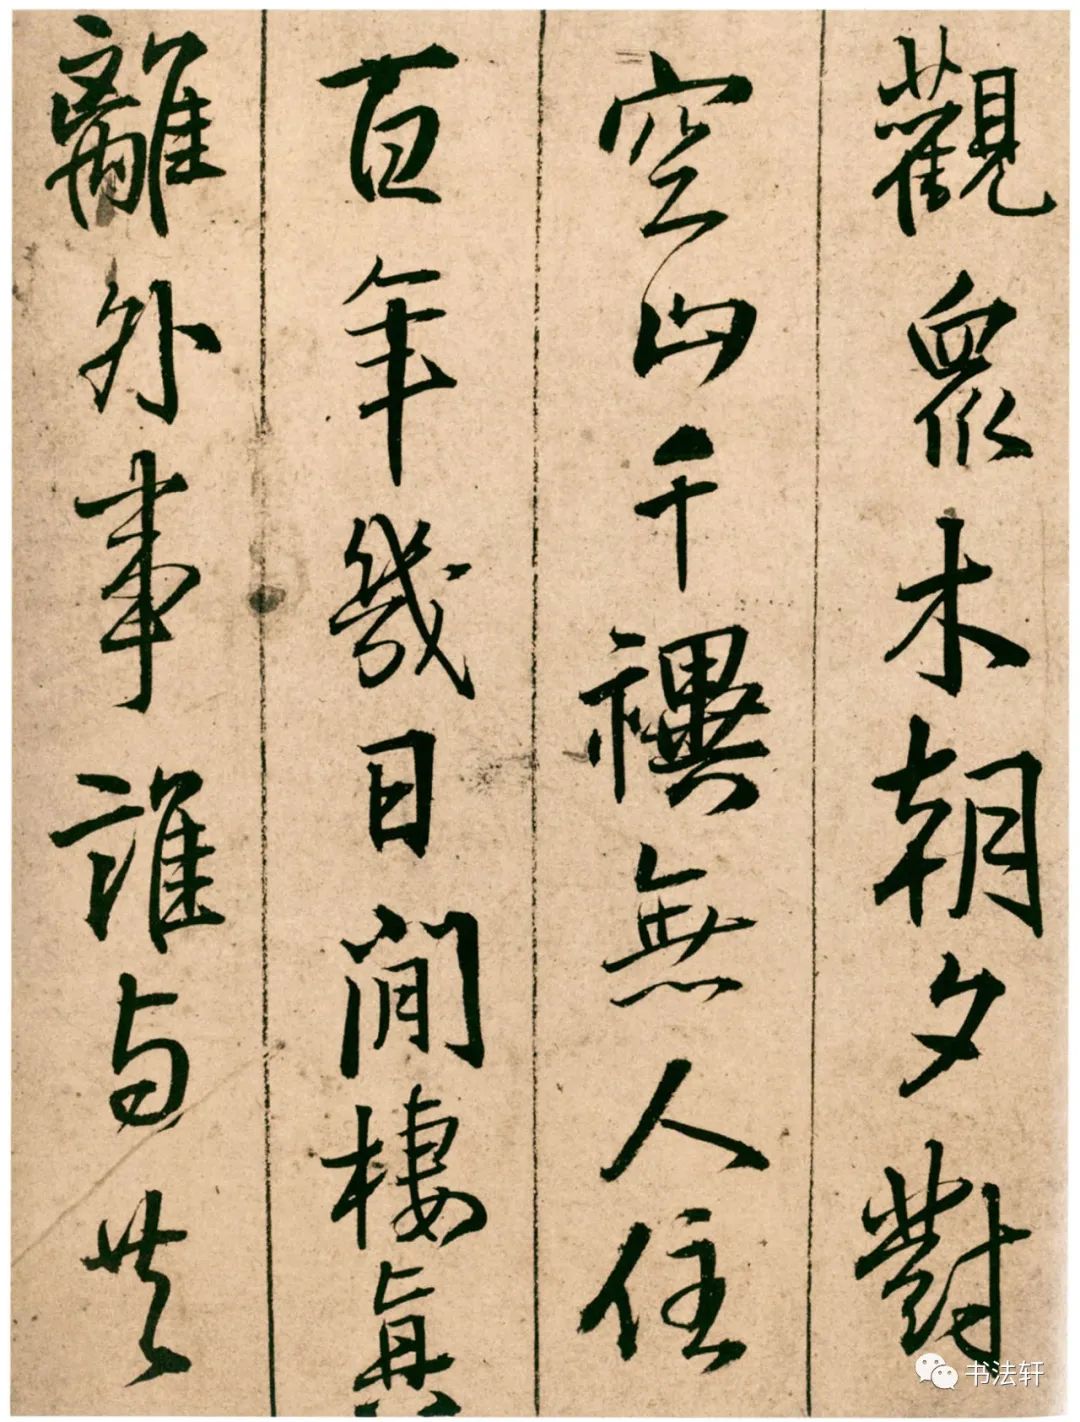 觀眾木朝夕對
空山千禩無人住
百年幾日閒棲真
離外事誰与共
书法轩